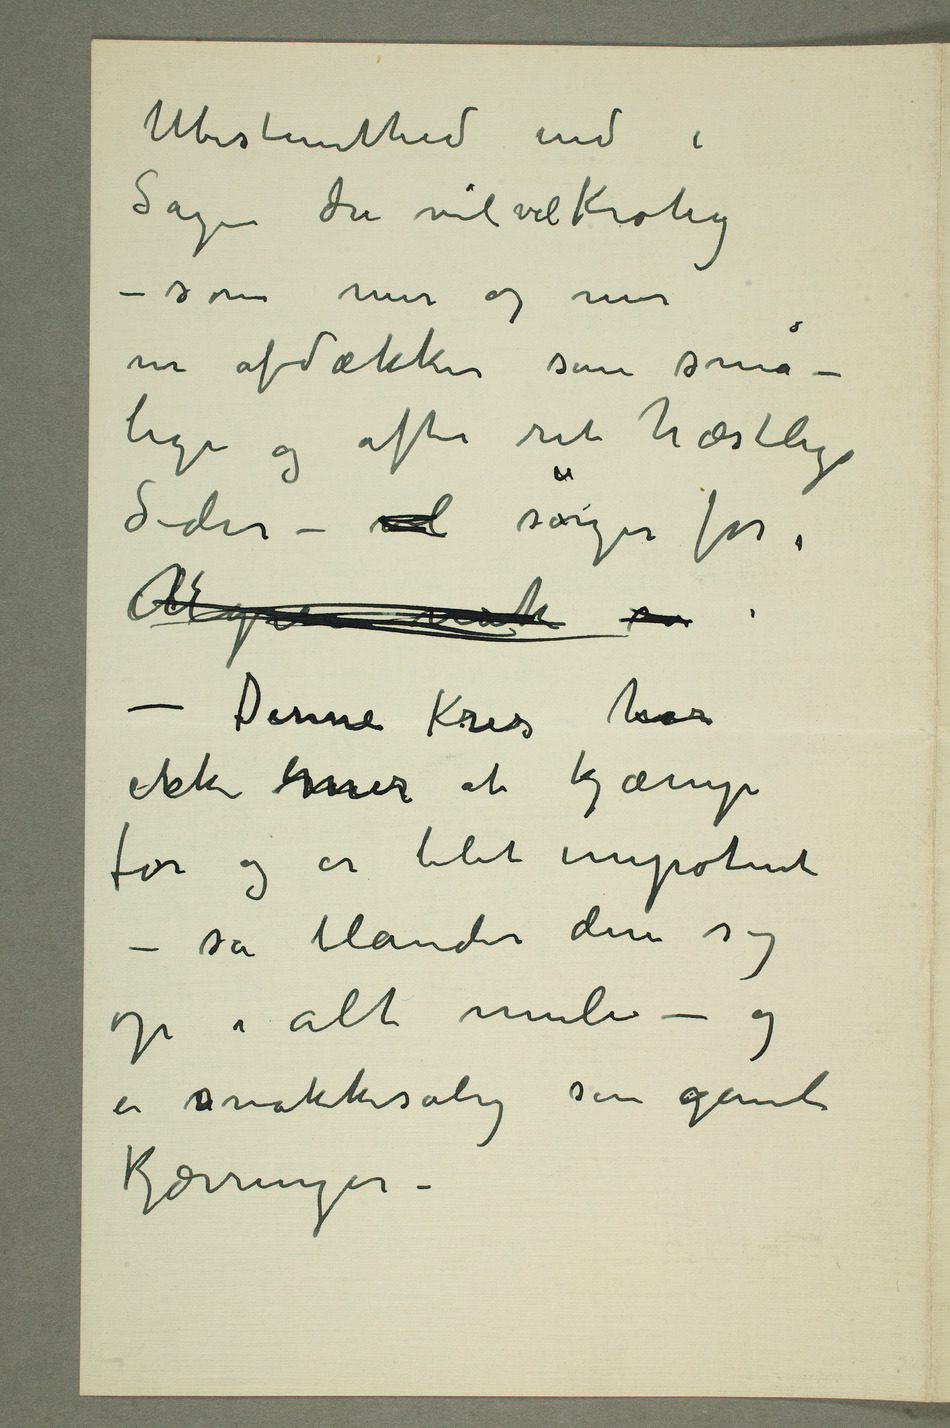 Ubestemthed ind i
Sagen du vil vel Krohg
– som mer og mer
nu afdækker sine små–
lige og ofte ret hæslige
Sider – sørger for,
— Denne Kres har
ikke mer at kjæmpe
for og er blet impotent
– så blander den sig
op i alt muli – og
er snakkesalig som gamle
Kjærringer –